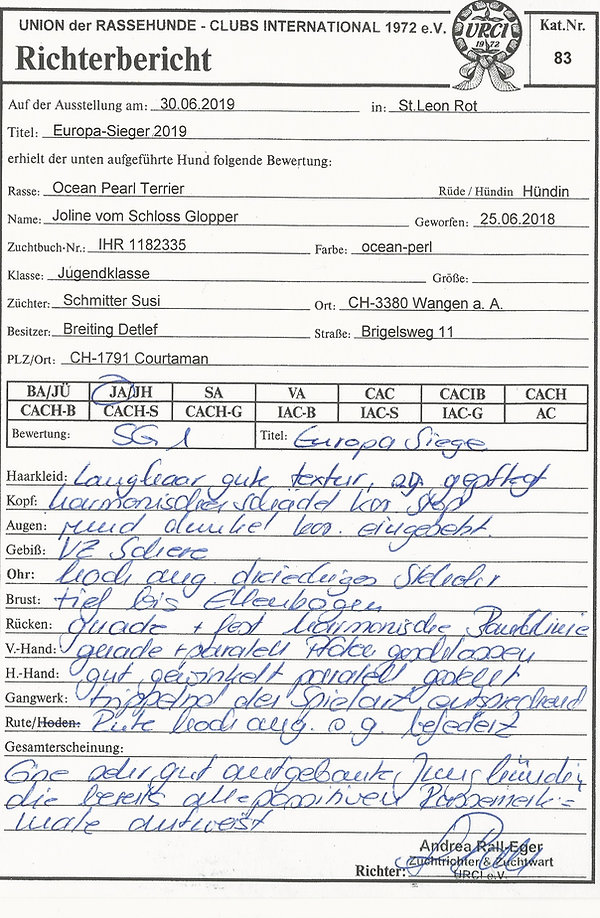 UNION der RASSEHUNDE - CLUBS INTERNATIONAL 1972 e.V.
URCI
1972
Kat.Nr.
Richterbericht
83
Auf der Ausstellung am: 30.06.2019 in: St.Leon Rot
Titel: Europa-Sieger 2019
erhielt der unten aufgeführte Hund folgende Bewertung:
Rasse: Ocean Pearl Terrier Rüde / Hündin Hündin
Name: Joline vom Schloss Glopper Geworfen: 25.06.2018
Zuchtbuch-Nr.: IHR 1182335 Farbe: ocean-perl
Klasse: Jugendklasse Größe:
Züchter: Schmitter Susi Ort: CH-3380 Wangen a. A.
Besitzer: Breiting Detlef Straße: Brigelsweg 11
PLZ/Ort: CH-1791 Courtaman
BA/JÜ JA/JH SA VA CAC CACIB CACH
CACH-B CACH-S CACH-G IAC-B IAC-S IAC-G AC
Bewertung: SG 1 Titel: Europa Siege
Haarkleid: Langhaar gute textur, gepflegt
Kopf: harmonischer schädel kor. Stop
Augen: rund dunkel kor. eingesetzt.
Gebiß: VZ Schere
Ohr: hoch ang. dreieckiges Stehohr
Brust: tief bis Ellenbogen
Rücken: grade + fest harmonische Bauchlinie
V.-Hand: gerade + parallel
H.-Hand: gut gewinkelt parallel gestellt
Gangwerk: trippelnd der Spielart entsprechend
Rute/Hoden: Rute hoch ang. s.g. befedert
Gesamterscheinung:
Eine sehr gut aufgebaute Junghündin
die bereits alle positiven Rassemerk=
male aufweist
Andrea Rall-Eger
Zuchtrichter & Zuchtwart
Richter: URCI e.V.